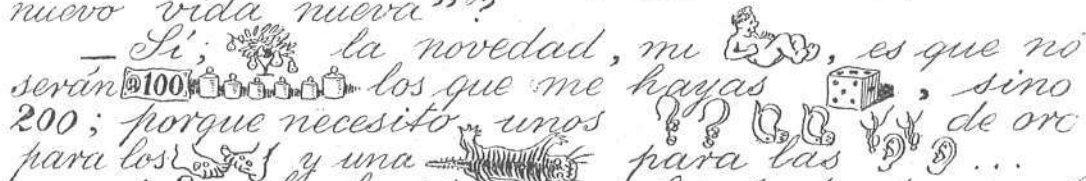 nuevo vida nueva"?
— Sí; la novedad, mi , es que no
serán @100 los que me hayas , sino
200; porque necesito unos de oro
para los y una para las ...